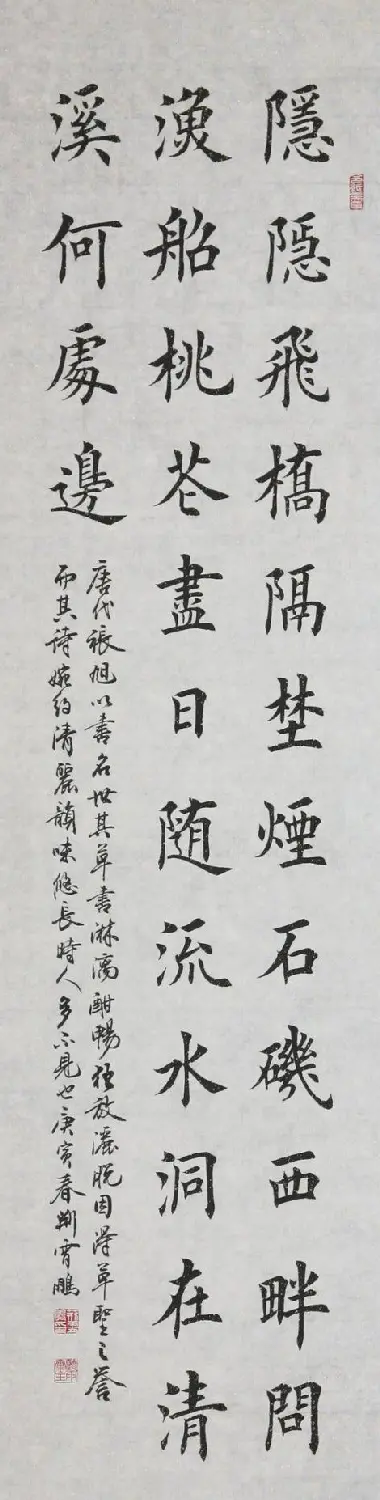 隱隱飛橋隔埜煙石磯西畔問
漁船桃花盡日随流水洞在清
溪何處邊
唐代張旭以書名世其草書淋漓酣暢狂放灑脫因得草聖之譽
而其詩婉約清麗韻味悠長時人多不見也庚寅春荆霄鵬